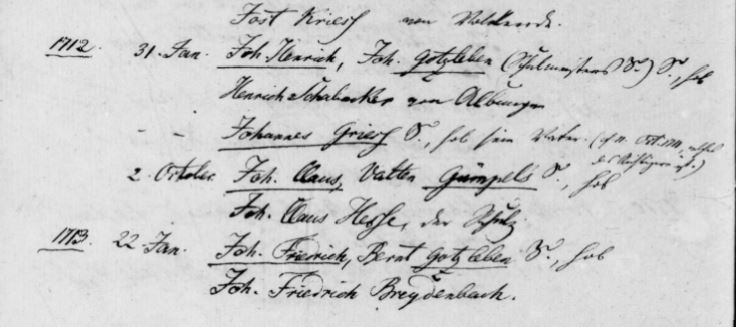 Jost Kriesch von
1712. 31. Jan. Joh. Henrich, Joh. Gotzleben (Schulmeisters S.) S., hob
Henrich Schabacker von Albungen
- - Johannes Griesch S., hob sein Vater.
2. October Joh. Claus, Valtin Gümpels S., hob
Joh. Claus Hesse, der Schulz
1713. 22. Jan. Joh. Friedrich, Bernt Gotzleben S., hob
Joh. Friedrich Breydenbach.